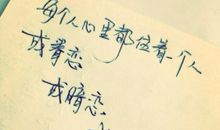 每个人心里都住着一个人
或眷恋
或暗恋